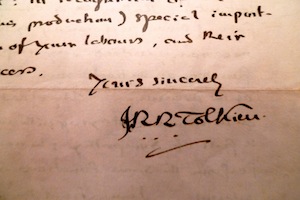 production) special import-
of your labours, and their
Yours sincerely
JRRTolkien.